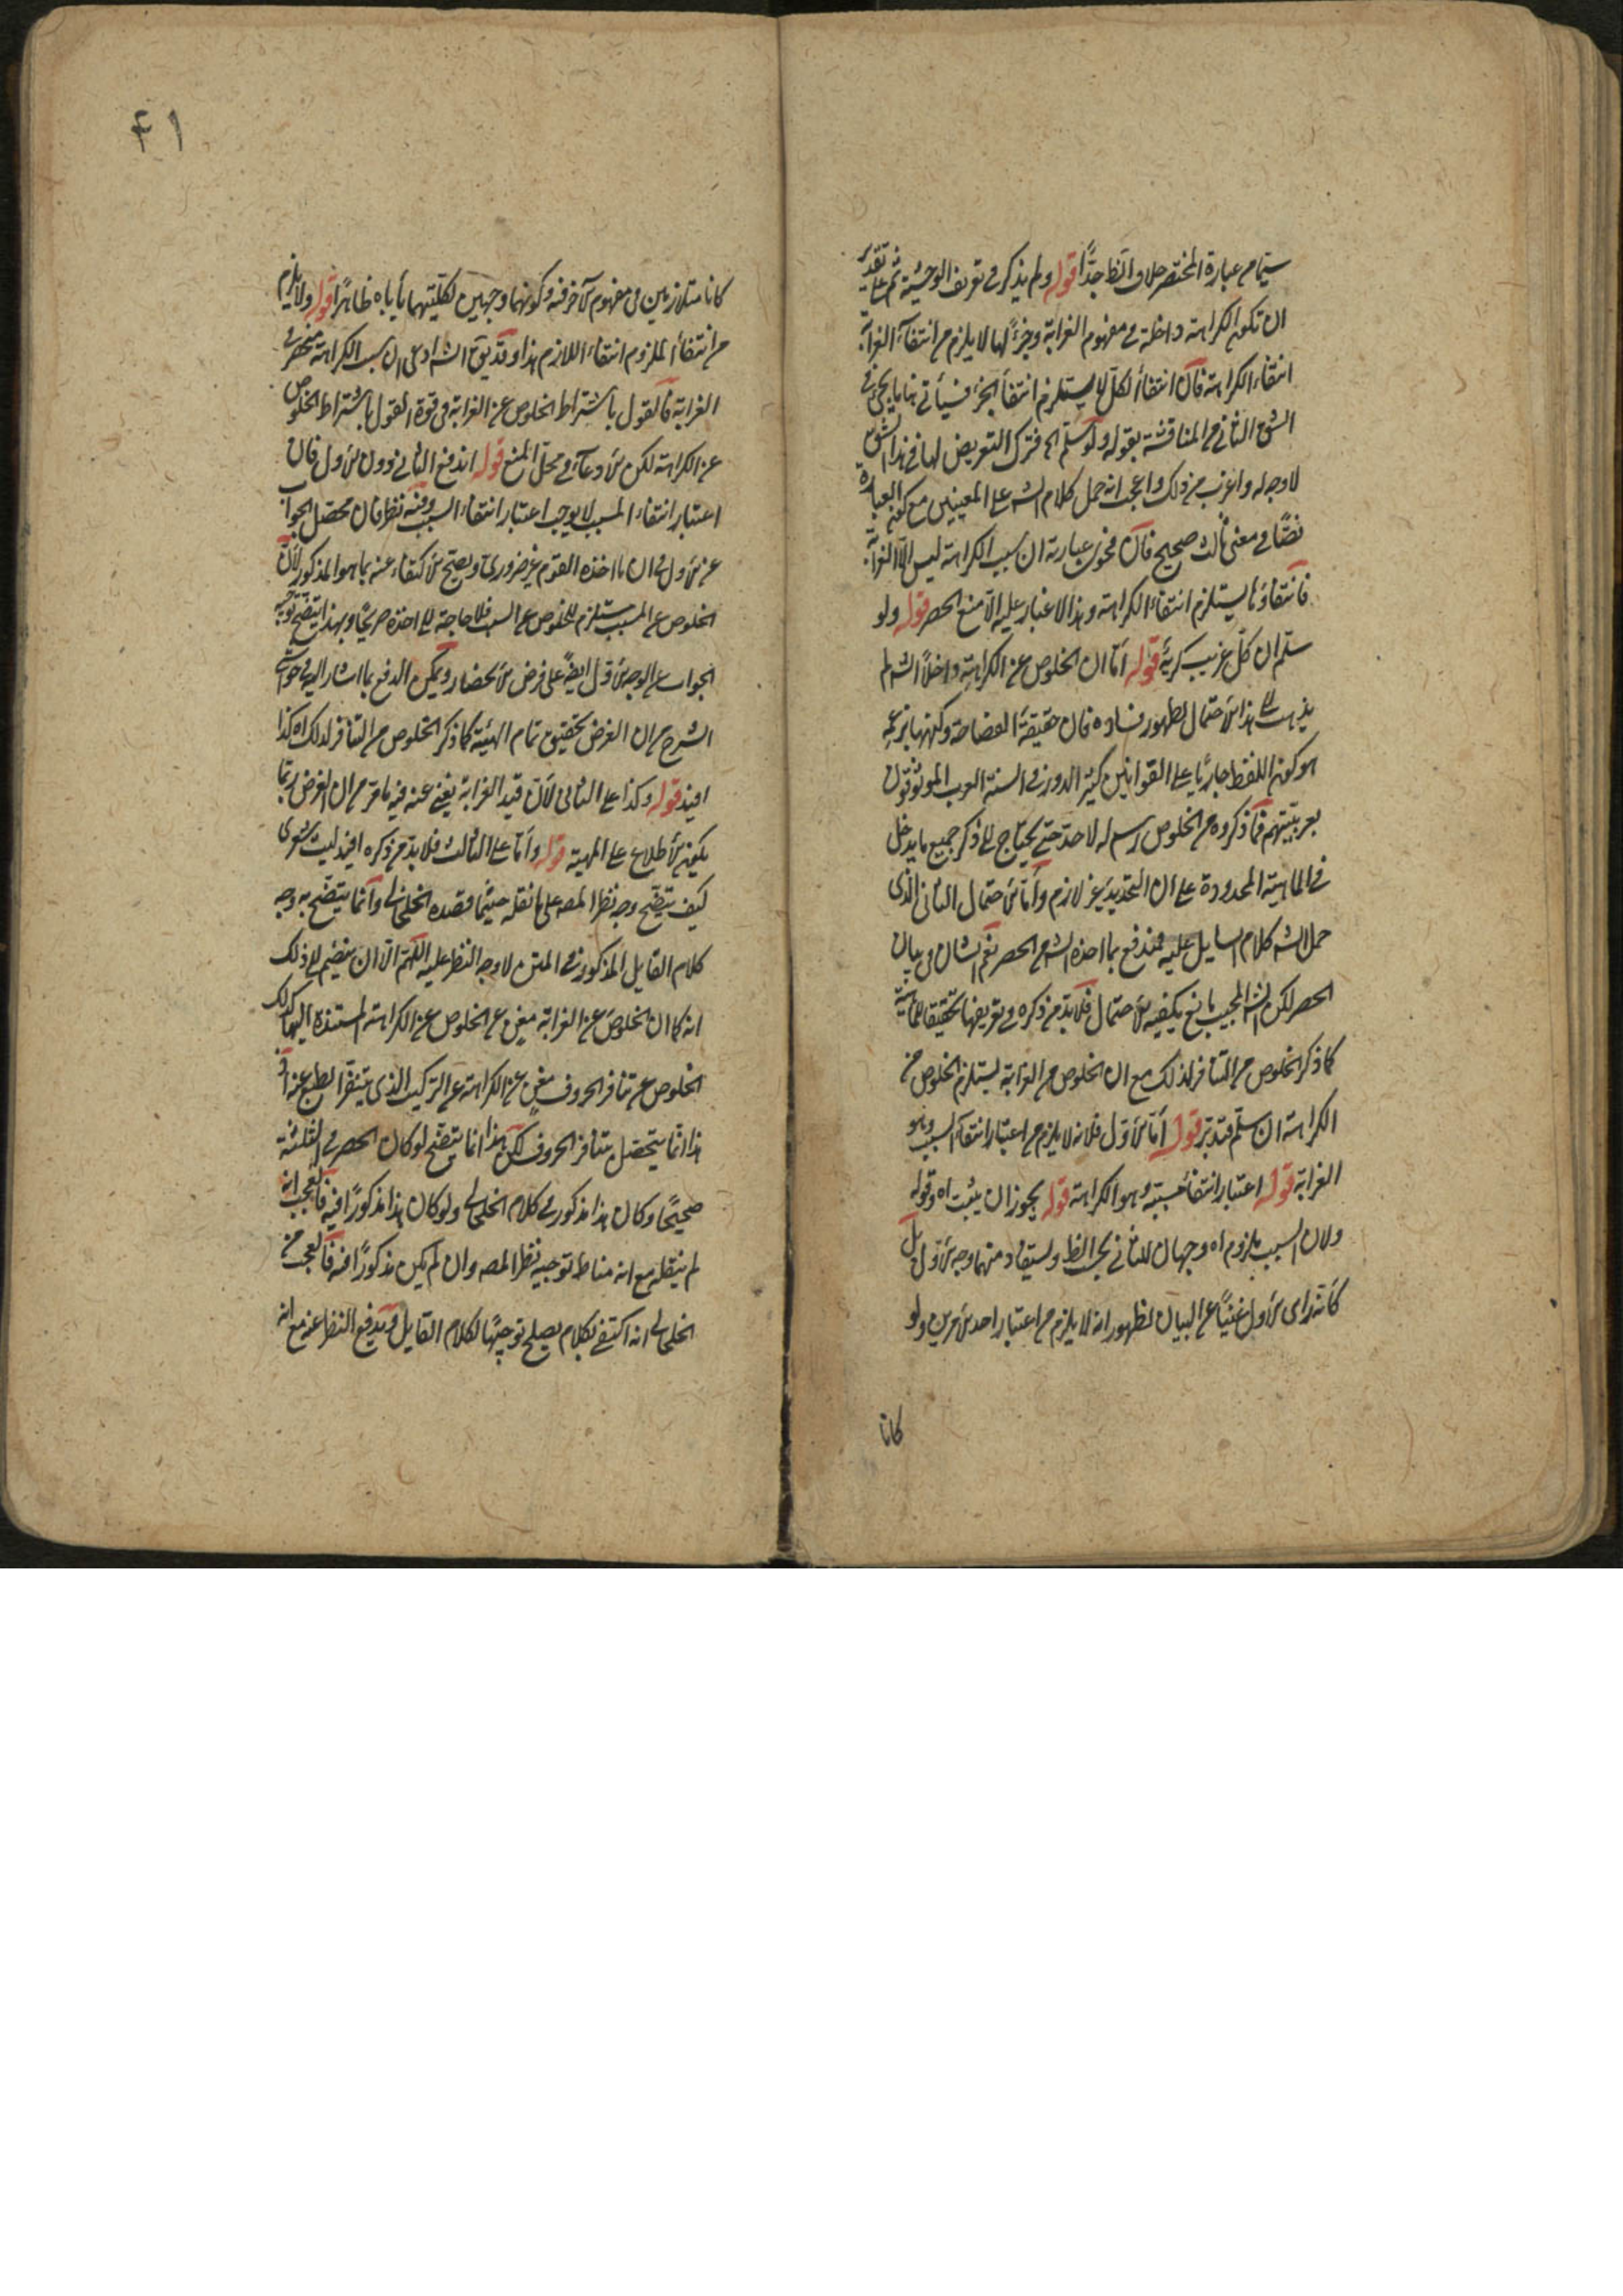 سيّما من عبارة المختصر خلاف الظ جدًّا قوله ولم يذكر في تعريف الوحشية ثم على تقدير
ان تكون الكراهة داخلة في مفهوم الغرابة وجزءً لها لا يلزم من انتفاء الغرابة
انتفاء الكراهة فان انتفاء الكل لا يستلزم انتفاء الجزء فسيأتي هنا ما يجئ في
الشق الثاني من المناقشة بقوله ولو سلّم الخ فترك التعريض لها في هذا الشق
لا وجه له واغرب من ذلك واعجب انه حمل كلام الشه على المعنيين مع كون العبارة
نصًّا في معنى ثالث صحيح فان فحوى عبارته ان سبب الكراهة ليس الا الغرابة
فانتفاؤها يستلزم انتفاء الكراهة وهذا لا غبار عليه الا منع الحصر قوله ولو
سلّم ان كل غريب كريه قوله امّا ان الخلوص عن الكراهة داخلا الشه لم
يذهب الى هذا الاحتمال لظهور فساده فان حقيقة الفصاحة وكنهها بزعمه
هو كون اللفظ جاريًا على القوانين كثير الدور في السنة العرب الموثوقون
بعربيتهم فما ذكروه من الخلوص رسم له لا حد حتى يحتاج الى ذكر جميع ما يدخل
في الماهية المحدودة على ان التحديد غير لازم وامّا الاحتمال الثاني الذي
حمل الشه كلام السايل عليه فمندفع بما اخذه الشه من الحصر نعم الشان في بيان
الحصر لكن الشه المجيب مانع يكفيه الاحتمال فلا بدّ من ذكره في تعريفها تحقيقا للماهية
كما ذكر الخلوص من التنافر لذلك مع ان الخلوص من الغرابة يستلزم الخلوص من
الكراهة ان سلّم فتدبّر قوله امّا الاوّل فلانه لا يلزم من اعتبار انتفاء السبب وهو
الغرابة قوله اعتبار انتفاء مسبّبه وهو الكراهة قوله يجوز ان يثبت اه وقوله
ولان السبب ملزوم اه وجهان للثاني بحسب الظ ويستفاد منهما وجه الاول بل
كانّه راى الاول غنيًّا عن البيان لظهور انه لا يلزم من اعتبار احد الامرين ولو
كانا
٤١
كانا متلازمين في مفهوم الآخر فيه وكونهما وجهين لكليتهما يأباه ظاهرًا قوله ولا يلزم
من انتفاء الملزوم انتفاء اللازم هذا وقد يق الشه ادعى ان سبب الكراهة منحصر في
الغرابة فالقول باشتراط الخلوص عن الغرابة في قوة القول باشتراط الخلوص
عن الكراهة لكن الادعاء في محل المنع قوله اندفع الثاني دون الاول فان
اعتبار انتفاء المسبب لا يوجب اعتبار انتفاء السبب وفيه نظر فان محصّل الجواب
عن الاول ان ما اخذه القوم غير ضروري ويصح الاكتفاء عنه بما هو المذكور لان
الخلوص عن المسبب مستلزم للخلوص عن السبب فلا حاجة الى اخذه صريحًا وبهذا يتضح توجيه
الجواب عن الوجه الاول ايضً على فرض الانحصار ويمكن الدفع بما اشار اليه في حواشي
الشرح من ان الغرض تحقيق تمام الهيئة كما ذكر الخلوص من التنافر لذلك اه كذا
افيد قوله وكذا على الثاني لان قيد الغرابة يغني عنه فيه ما مرّ من ان الغرض ربّما
يكون الاطلاع على المهية قوله وامّا على الثالث فلا بدّ من ذكره افيد ليت شعري
كيف يتضح وجه نظر المصه على ما نقله حيثما قصده الخلخالي وانّما يتضح به وجه
كلام القايل المذكور في المتن لا وجه النظر عليه اللهم الا ان ينضم الى ذلك
انه كما ان الخلوص عن الغرابة مغن عن الخلوص عن الكراهة المستندة اليها كذلك
الخلوص عن تنافر الحروف مغن عن الكراهة عن التركيب الذي يتنفر الطبع عنه اذ
هذا انّما يتحصل بتنافر الحروف لكن هذا انما يتضح لو كان الحصر في الثلثة
صحيحًا وكان هذا مذكورًا في كلام الخلخالي ولو كان هذا مذكورًا فيه فالعجب انه
لم ينقله مع انه مناط توجيه نظر المصه وان لم يكن مذكورًا فيه فالعجب من
الخلخالي انه اكتفى بكلام يصلح توجيهًا لكلام القايل ويدفع النظر عنه مع انه